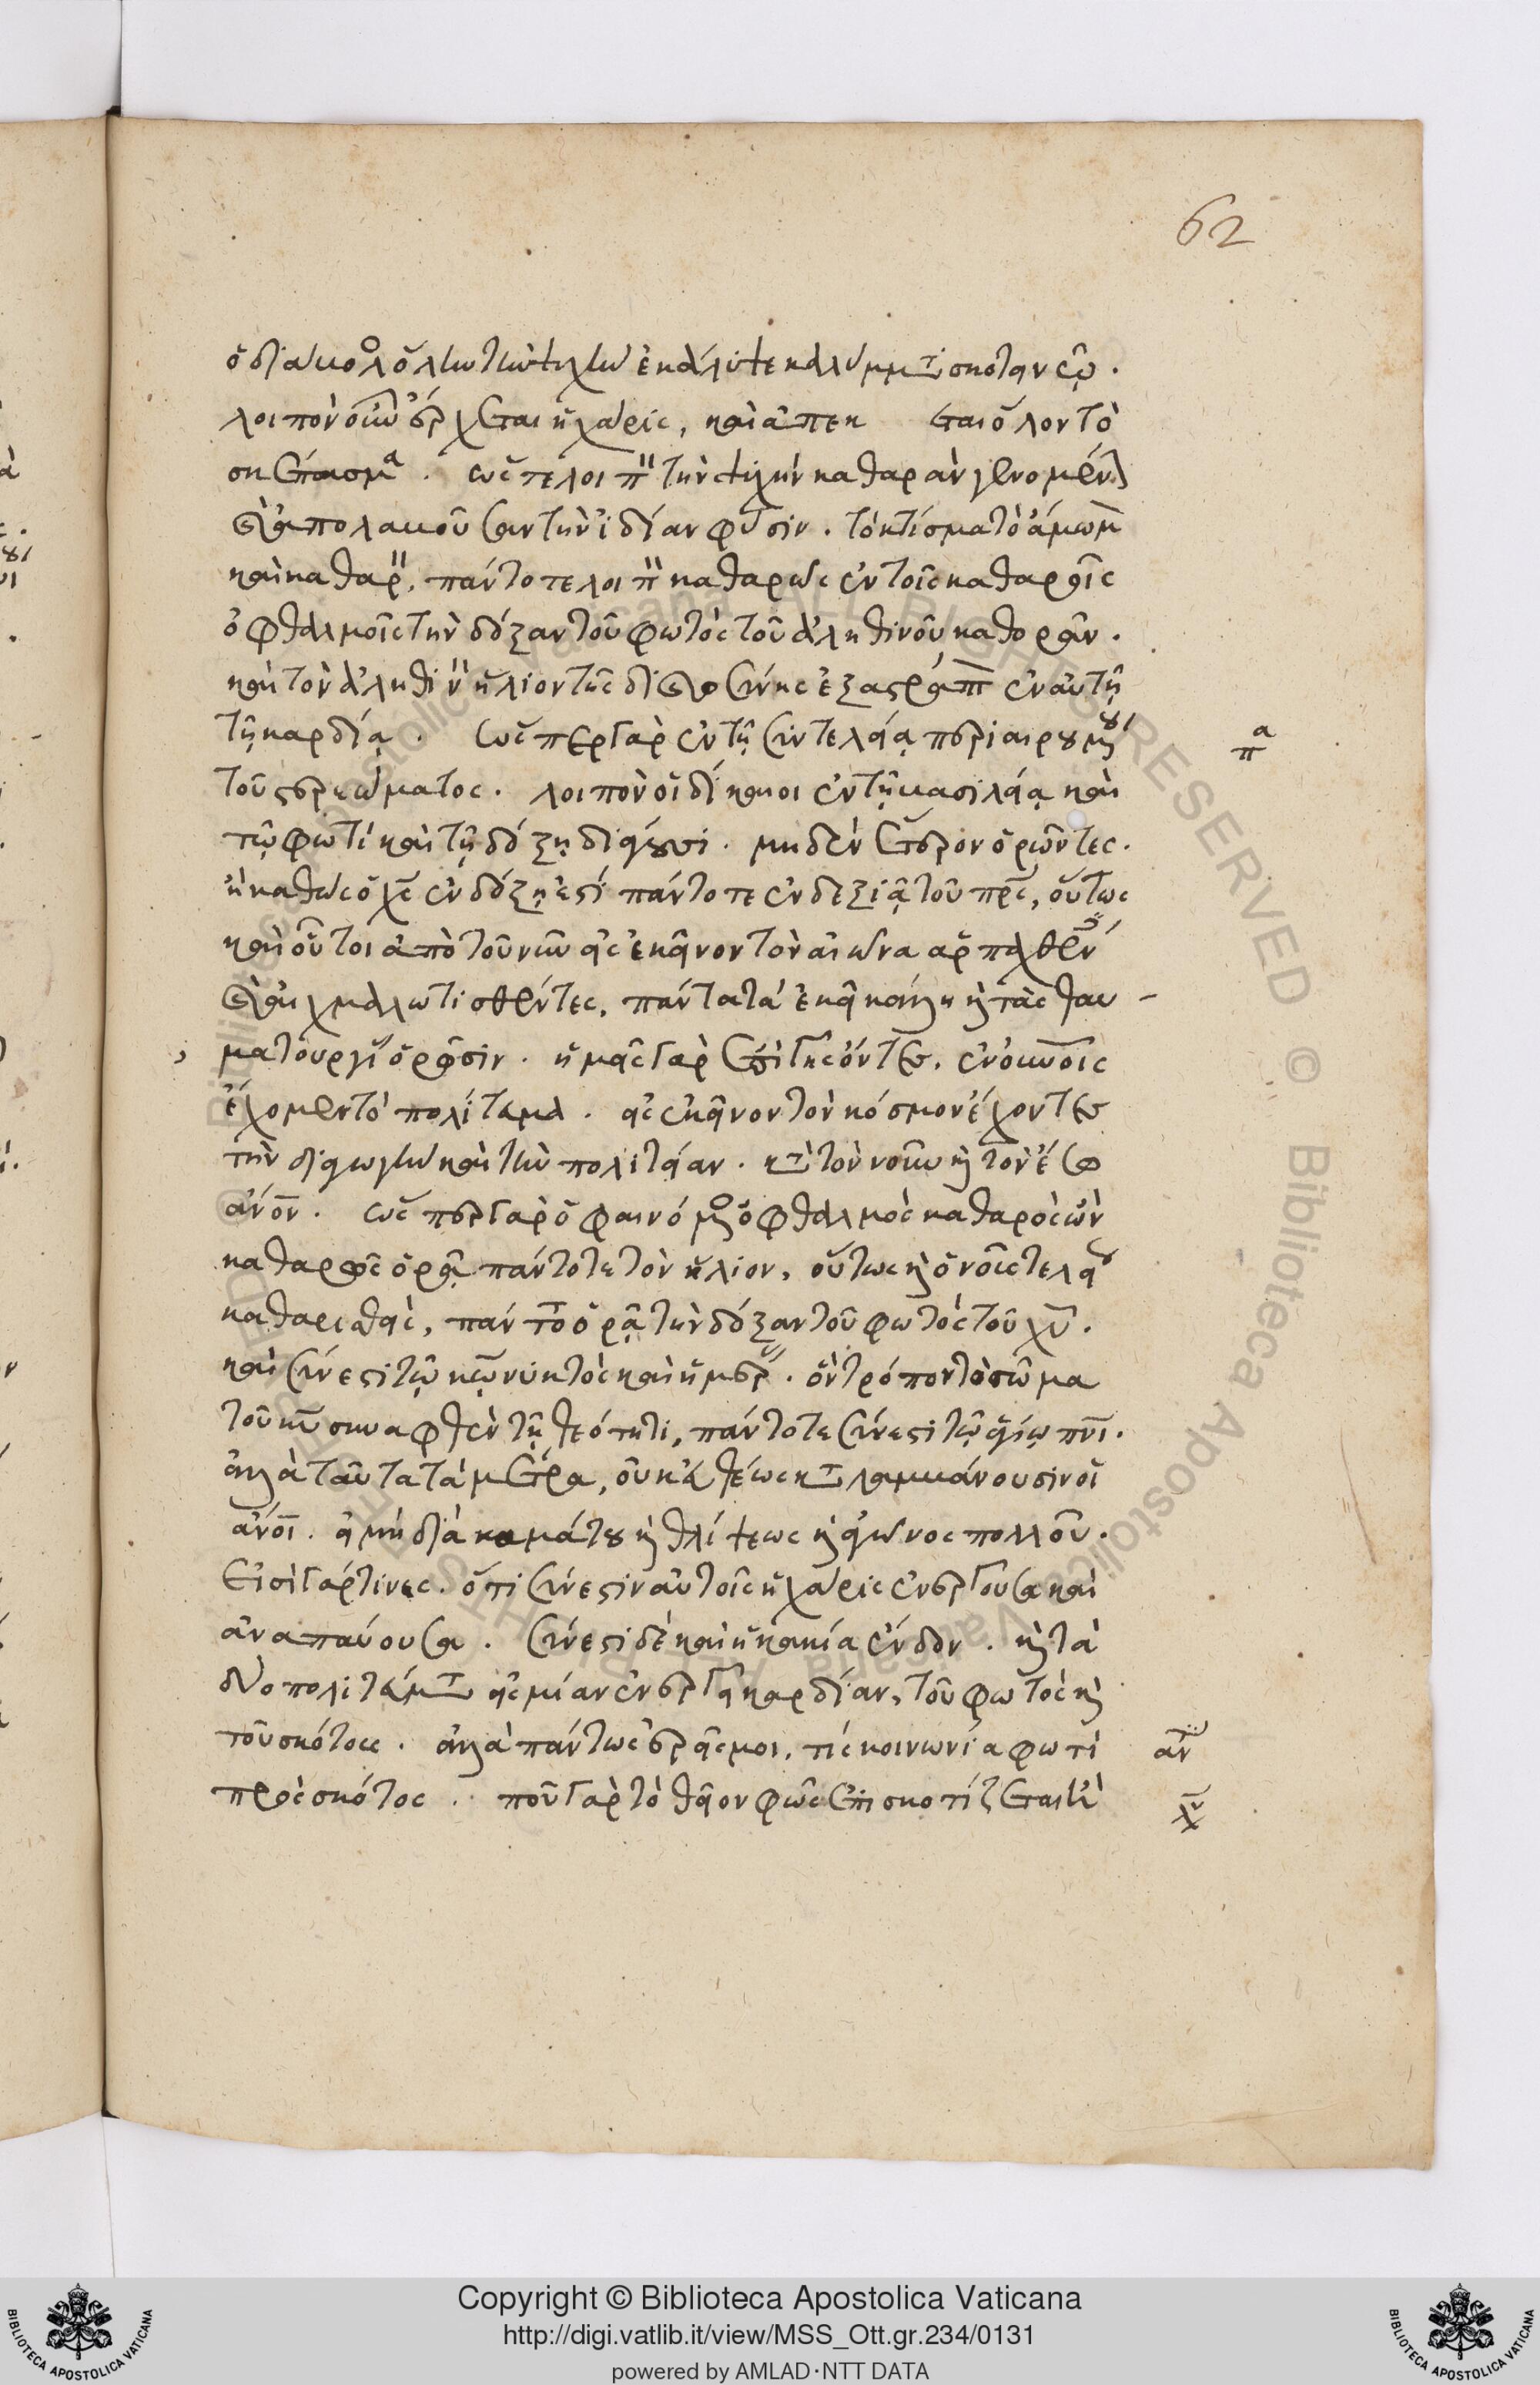 ὁ διάβολο ὅλην τὴν ψυχὴν ἐκάλυψε καλύμματι σκοτεινῶ.
λοιπὸν οὖν ἔρχεται ἡ χάρις, καὶ ἀπεκ εται ὅλον τὸ
σκέπασμα. ὥστε λοιπ τὴν ψυχὴν καθαρὰν γενομένην
καὶ ἀπολαβοῦσαν τὴν ἰδίαν φύσιν. τὸ κτίσμα τὸ ἄμωμ
καὶ καθαρ, πάντοτε λοιπ καθαρῶς ἐν τοῖς καθαροῖς
ὀφθαλμοῖς τὴν δόξαν τοῦ φωτὸς τοῦ ἀληθινοῦ καθορᾶν.
καὶ τὸν ἀληθιν ἥλιον τῆς δικαιοσύνης ἐξαστράπ ἐν αὐτῇ
τῇ καρδίᾳ. ὥσπερ γὰρ ἐν τῇ συντελείᾳ περιαιρουμου
τοῦ στερεώματος. λοιπὸν οἱ δίκαιοι ἐν τῇ βασιλείᾳ καὶ
τῷ φωτὶ καὶ τῇ δόξῃ διάγουσι. μηδὲν ἕτερον ὁρῶντες.
ἢ καθὼς ὁ χς ἐν δόξῃ ἐστὶ πάντοτε ἐν δεξιᾷ τοῦ πρς, οὕτως
καὶ οὗτοι ἀπὸ τοῦ νῦν εἰς ἐκεῖνον τὸν αἰῶνα ἁρπαχθέν
καὶ αἰχμαλωτισθέντες, πάντα τὰ ἐκεῖ κάλλη καὶ τὰς θαυ-
ματουργί ὁρῶσιν. ἡμεῖς γὰρ ἐπὶ γῆς ὄντες, ἐν οὐνοῖς
ἔχομεν τὸ πολίτευμα. εἰς ἐκεῖνον τὸν κόσμον ἔχοντες
τὴν διαγωγὴν καὶ τὴν πολιτείαν. κατὰ τὸν νοῦν καὶ τὸν ἔσω
ἄνον. ὥσπερ γὰρ ὁ φαινόμο ὀφθαλμὸς καθαρὸς ὢν
καθαρῶς ὁρᾷ πάντοτε τὸν ἥλιον, οὕτως καὶ ὁ νοῦς τελεί
καθαρισθεὶς, πάντο ὁρᾷ τὴν δόξαν τοῦ φωτὸς τοῦ χυ.
καὶ σύνεστι τῷ κω νυκτὸς καὶ ἡμέρ. ὃν τρόπον τὸ σῶμα
τοῦ κυ συναφθὲν τῇ θεότητι, πάντοτε σύνεστι τῷ ἁγίῳ πνι.
ἀλλὰ ταῦτα τὰ μέτρα, οὐκ εὐθέως καταλαμβάνουσιν οἱ
ἄνοι. εἰ μὴ διὰ καμάτου καὶ θλίψεως καὶ ἀγῶνος πολλοῦ.
εἰσὶ γάρ τινες. ὅτι σύνεστιν αὐτοῖς ἡ χάρις ἐνεργοῦσα καὶ
ἀναπαύουσα. σύνεστι δὲ καὶ ἡ κακία ἔνδον. καὶ τὰ
δύο πολιτεύματα εἰς μίαν ἐνεργεῖ καρδίαν, τοῦ φωτὸς καὶ
τοῦ σκότους. ἀλλὰ πάντως ἐρεῖς μοι, τίς κοινωνία φωτὶ
πρὸς σκότος. ποῦ γὰρ τὸ θεῖον φῶς ἐπισκοτίζεται ἢ